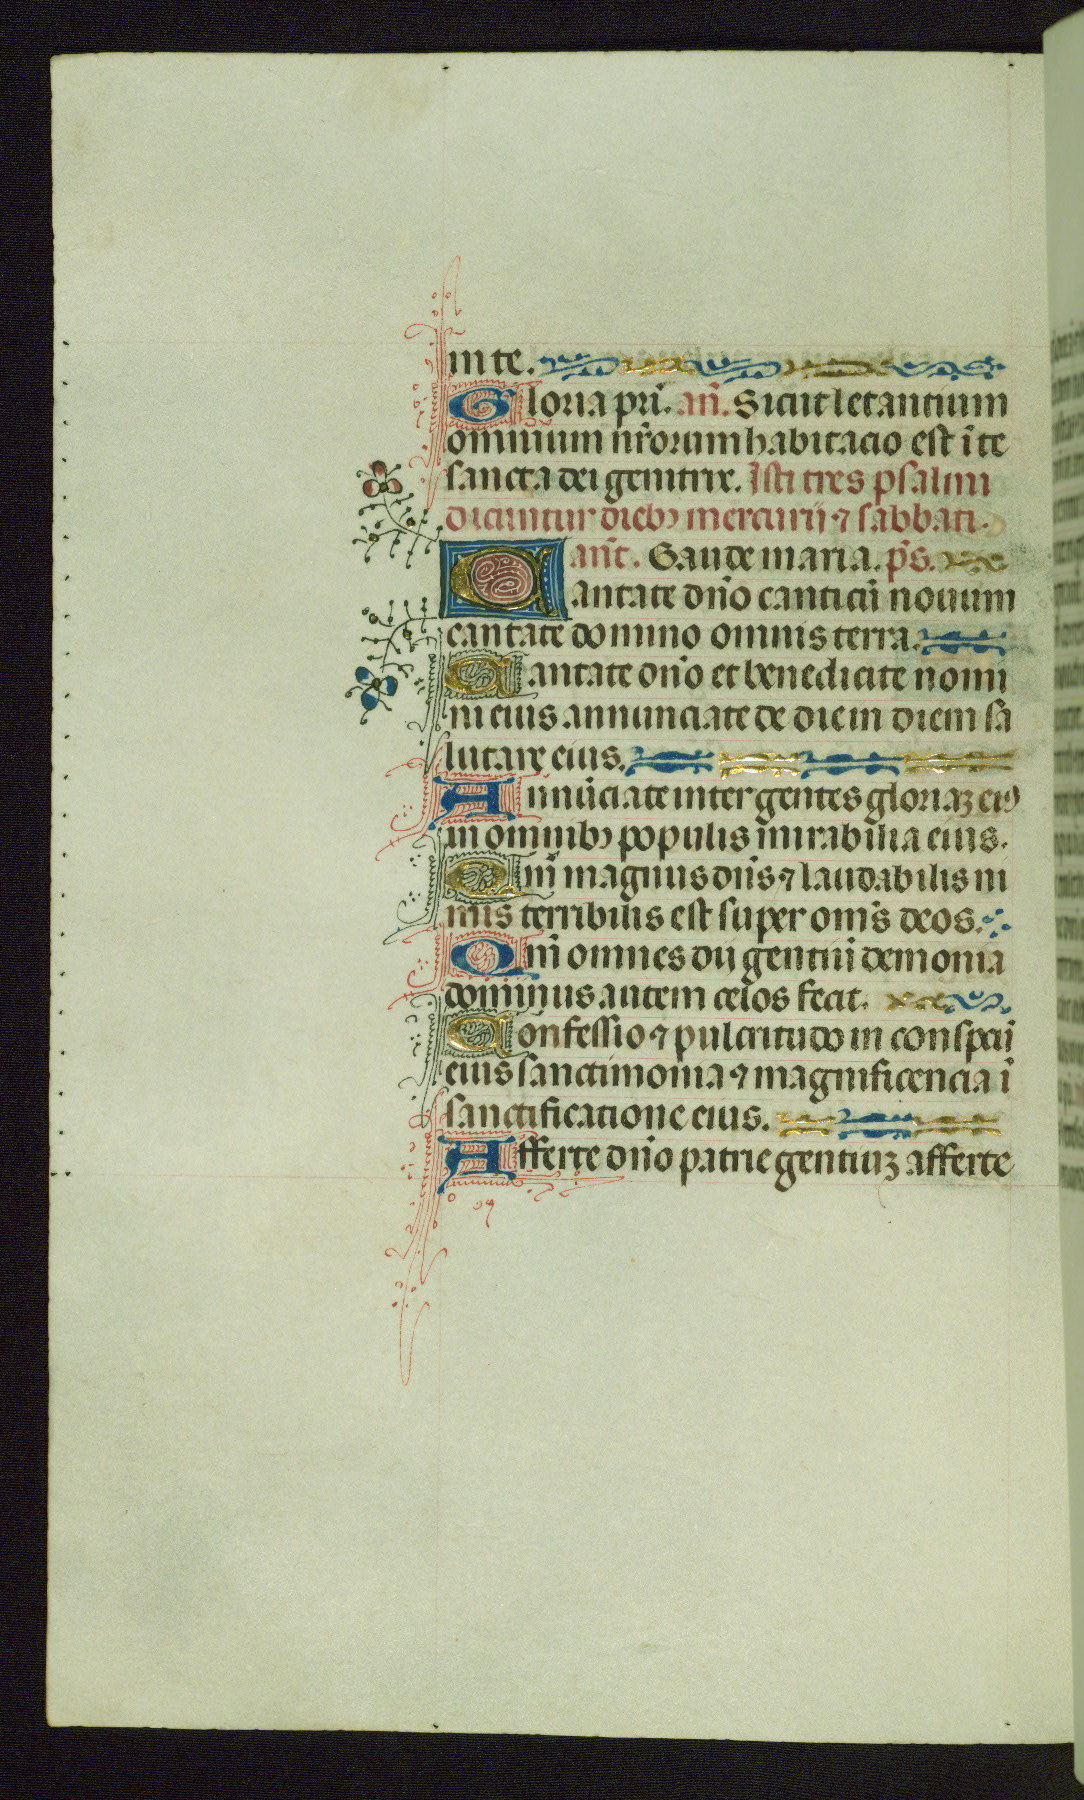 in te.
Gloria pr̄i. an̄. Sicut letantium
omnium nr̄orum habitacio est ī te
sancta dei genitrix. Isti tres psalmi
dicuntur dieb⁹ mercurij ⁊ sabbati.
an̄t. Gaude maria. p̄s.
Cantate dn̄o canticū nouum
cantate domino omnis terra.
Cantate dn̄o et benedicite nomi
ni eius annunciate de die in diem sa
lutare eius.
Annūciate inter gentes gloriaꝫ ei⁹
in omnib⁹ populis mirabilia eius.
Qm̄ magnus dn̄s ⁊ laudabilis ni
mis terribilis est super om̄s deos.
Qm̄ omnes dii gentiū demonia
dominus autem celos fecit.
Confessio ⁊ pulcritudo in conspcū
eius sanctimonia ⁊ magnificencia ī
sanctificatione eius.
Afferte dn̄o patrie gentiuꝫ afferte